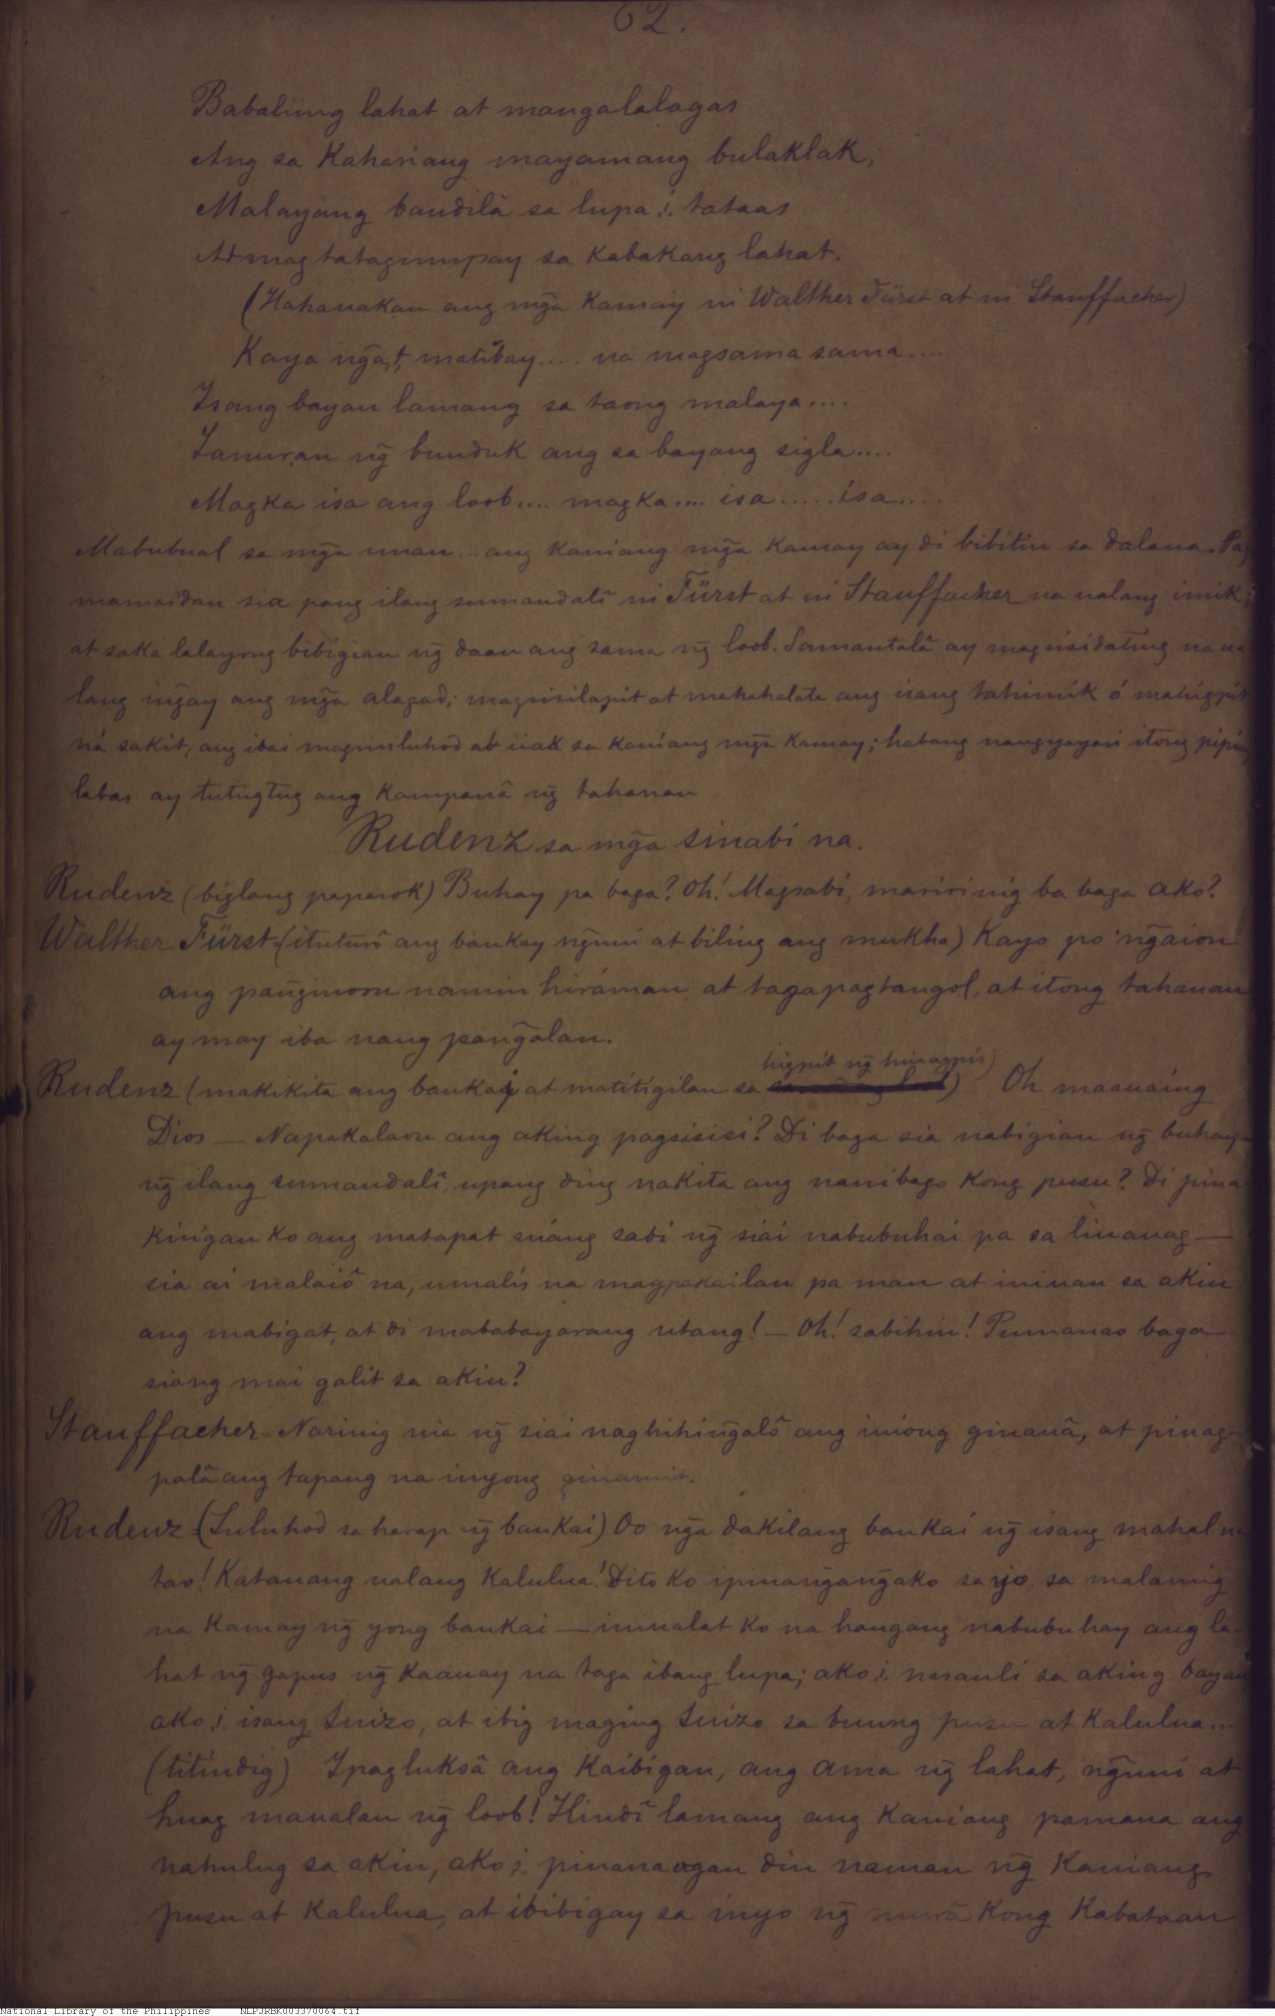 62.
Babaliing lahat at mangalalagas
Ang sa Kahariang mayamang bulaklak,
Malayang bandilà sa lupa,i, tataas
At mag tatagumpay sa Kabakang lahat.
(Hahanakan ang mg̃a Kamay ni Walther Fürst at ni Stauffacher)
Kaya ng̃a,t, matibay.... na magsama sama....
Isang bayan lamang sa taong malaya....
Tanuran ng̃ bunduk ang sa bayang sigla....
Magka isa ang loob.... magka.... isa ...... isa....
Mabubual sa mg̃a unan... ang Kaniang mg̃a Kamay ay di bibitiu sa dalaua. Pag
mamasdan sia pang ilang sumandalî ni Fürst at ni Stauffacher na ualang imik;
at saka lalayong bibigian ng̃ daan ang sama ng̃ loob. Samantalâ ay magsisidating na ua
lang ing̃ay ang mg̃a alagad; magsisilapit at mahahalata ang isang tahimik ó mahigpit
na sakit, ang iba'i magsisiluhod at iiak sa Kaniang mg̃a Kamay; habang nangyayari itong piping
labas ay tutugtug ang Kampanâ ng̃ tahanan
Rudenz sa mg̃a sinabi na.
Rudenz (biglang papasok) Buhay pa baga? Oh! Magsabi, maririnig ba baga ako?
Walther Fürst (ituturô ang bankay ng̃uni at biling ang mukha) Kayo po ng̃aion
ang pang̃inoon namin hiráman at tagapagtangol, at itong tahanan
ay may iba nang pang̃alan.
Rudenz (makikita ang bankay at matitigilan sa higpit ng̃ hinagpis) Oh maauaing
Dios — Napakalaon ang aking pagsisisi? Di baga sia nabigian ng̃ buhay
ng̃ ilang sumandalî, upang ding nakita ang nanibago Kong pusu? Di pina
Kingan ko ang matapat niáng sabi ng̃ siai nabubuhai pa sa liuanag —
sia ai malaiô na, umalis na magpakailan pa man at iniuan sa akin
ang mabigat, at di mababayarang utang! — Oh! sabihin! Pumanao baga
siang mai galit sa akin?
Stauffacher Narinig nia ng̃ siai naghihing̃alô ang iniong ginauâ, at pinag-
palâ ang tapang na inyong ginamit.
Rudenz (Luluhod sa harap ng̃ bankai) Oo ng̃a dakilang bankai ng̃ isang mahal na
tao! Katauang ualang Kalulua! Dito ko ipinang̃ang̃ako sa iyo sa malamig
na Kamay ng̃ yong bankai — inualat ko na hangang nabubuhay ang la-
hat ng̃ gapus ng̃ Kaauay na taga ibang lupa; ako,i, nasauli sa aking bayan
ako,i, isang Suizo, at ibig maging Suizo sa buung pusu at Kalulua...
(titindig) Ipagluksâ ang Kaibigan, ang ama ng̃ lahat, ng̃uni at
huag maualan ng̃ loob! Hindî lamang ang Kaniang pamana ang
nahulug sa akin, ako,i, pinanaogan din naman ng̃ Kaniang
pusu at Kalulua, at ibibigay sa inyo ng̃ murà Kong Kabataan
National Library of the Philippines NLPJRBK003370064.tif